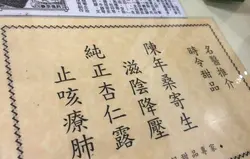 名醫推介
時令甜品
陳年桑寄生
滋陰降壓
純正杏仁露
止咳療肺